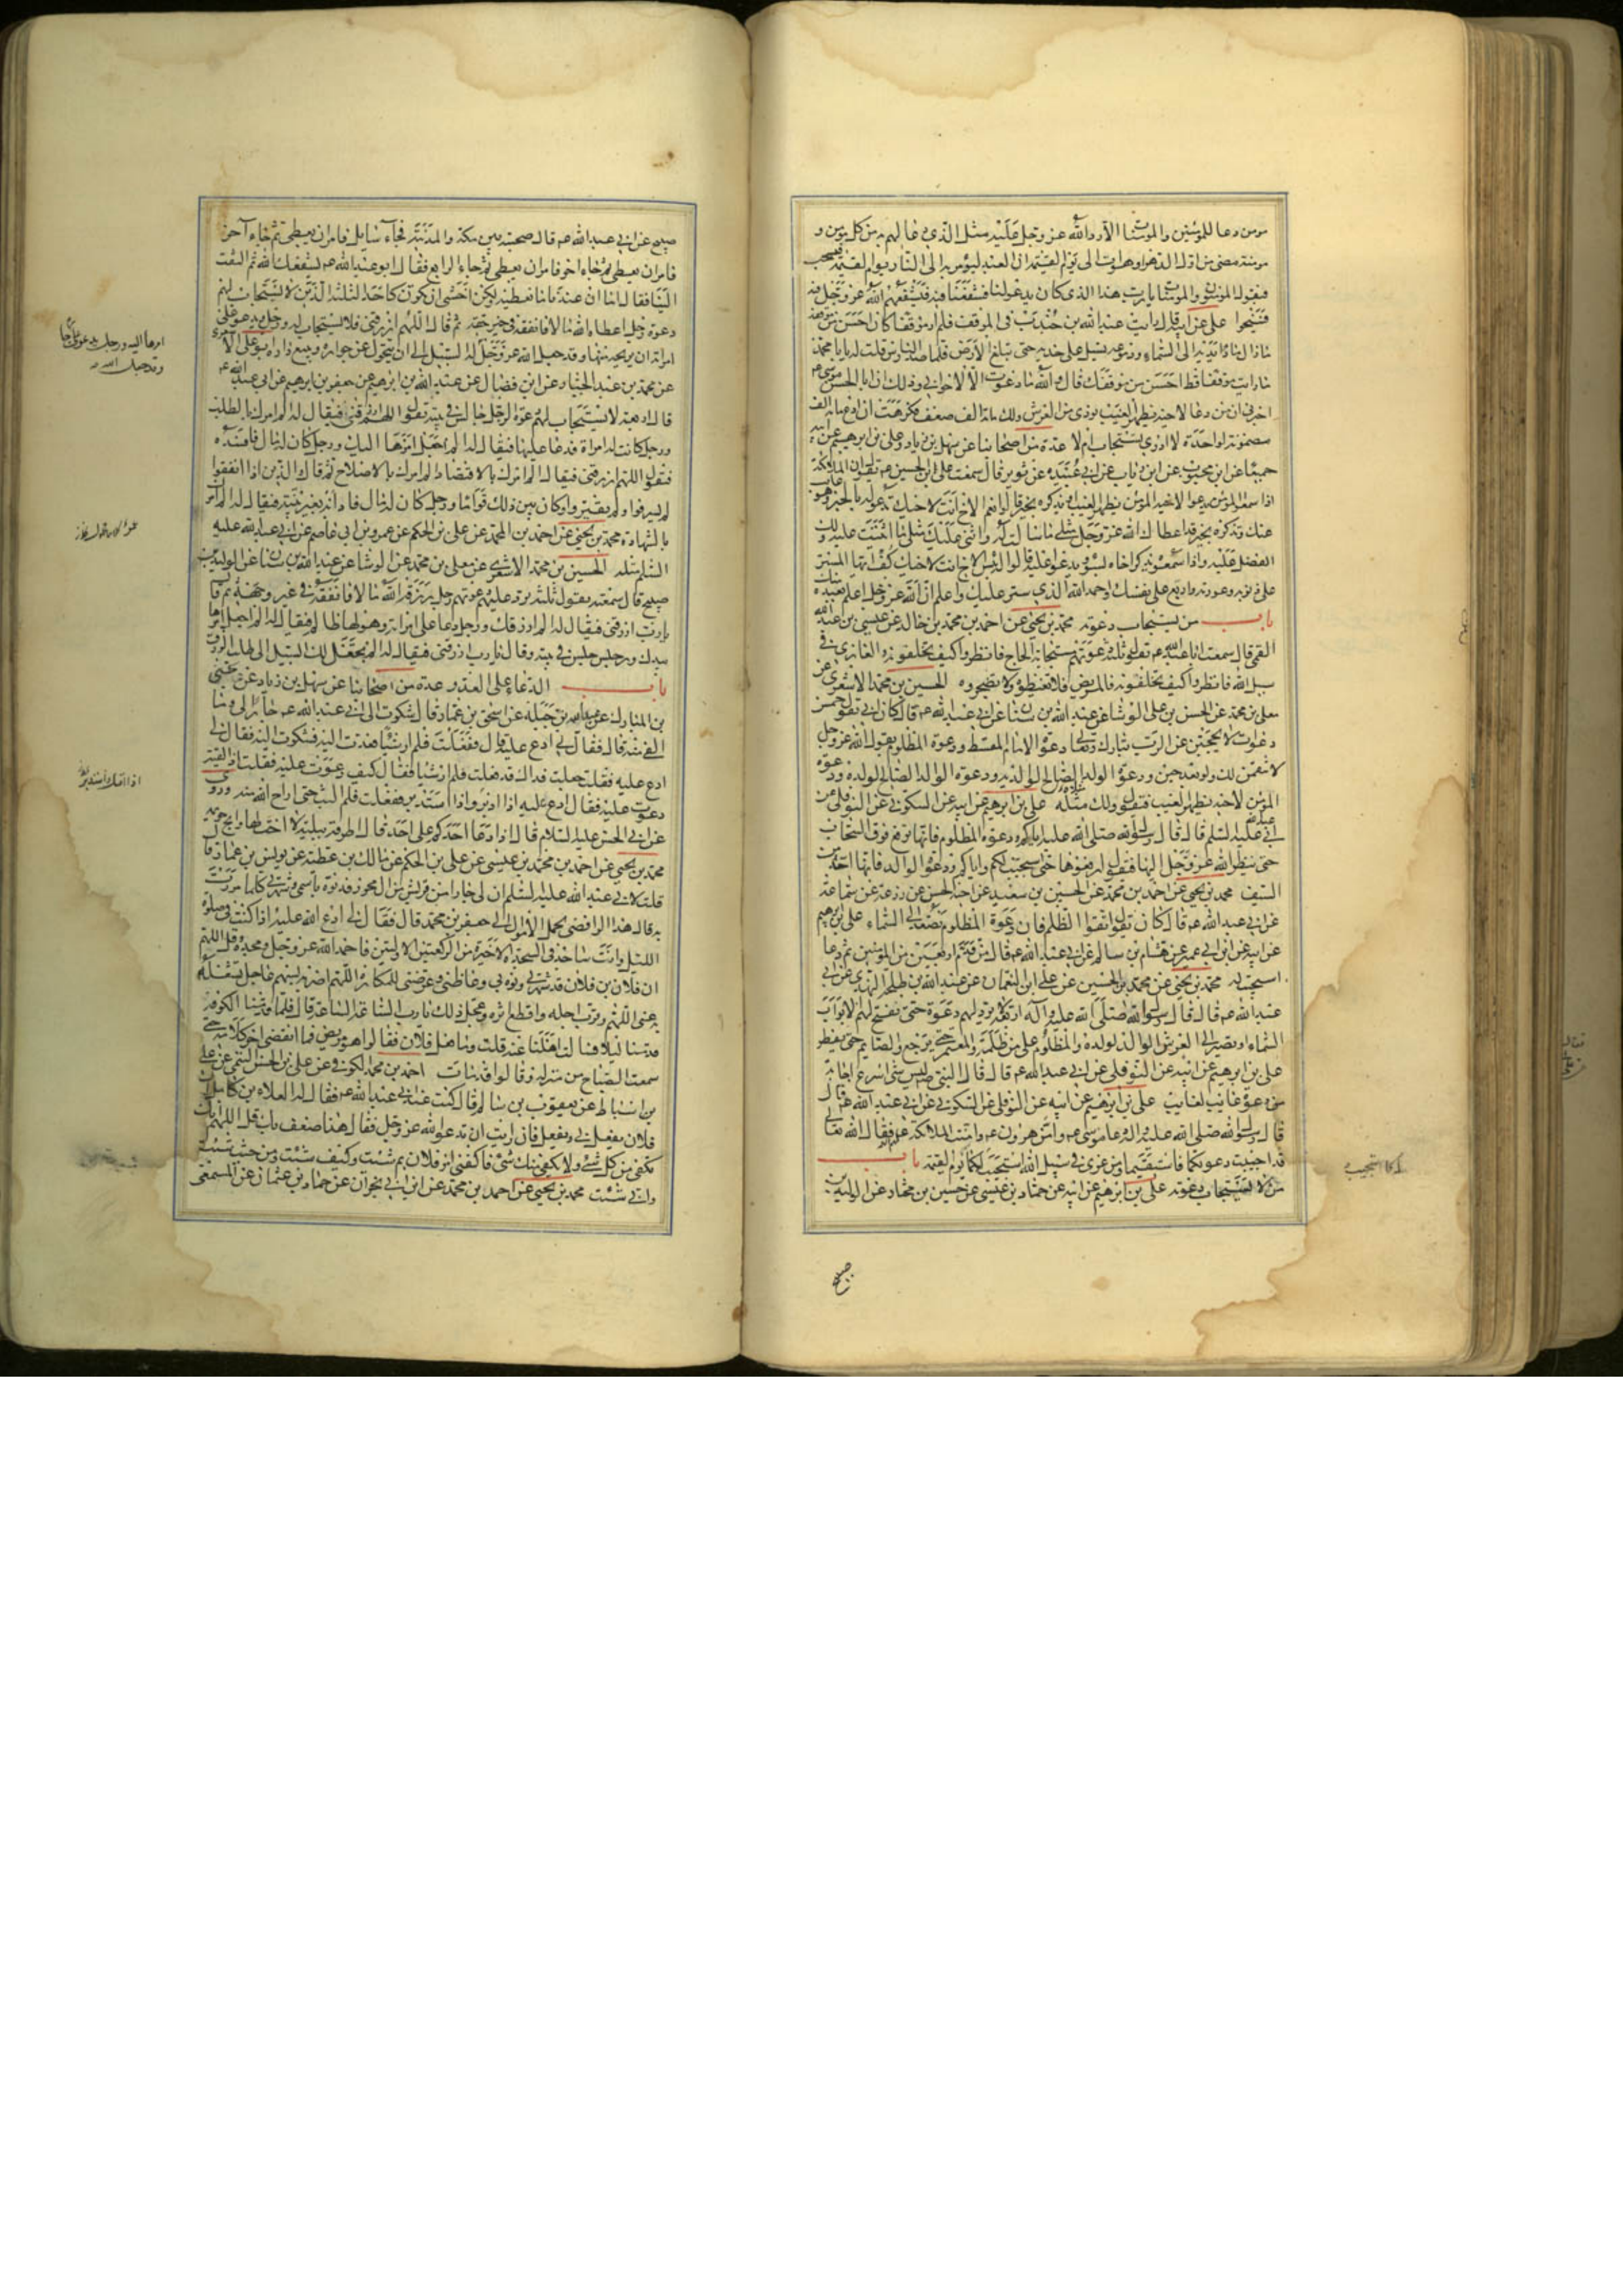 مؤمن دعا للمؤمنين والمؤمنات الا رد الله عز وجل عليه مثل الذي دعا لهم به من كل مؤمن و
مؤمنة مضى من اول الدهر او هو آت الى يوم القيمة ان العبد ليؤمر به الى النار يوم القيمة فيسحب
فيقول المؤمنون والمؤمنات يا رب هذا الذي كان يدعو لنا فشفعنا فيه فيشفعهم الله عز وجل فيه
فينجوا علي عن ابيه قال رايت عبد الله بن جندب في الموقف فلم ار موقفا كان احسن من موقفه
ما زال مادا يديه الى السماء ودموعه تسيل على خديه حتى تبلغ الارض فلما صدر الناس قلت له يا با محمد
ما رايت موقفا قط احسن من موقفك قال والله ما دعوت الا لاخواني وذلك ان ابا الحسن موسى
اخبرني ان من دعا لاخيه بظهر الغيب نودي من العرش ولك مائة الف ضعف فكرهت ان ادع مائة الف
مضمونة لواحدة لا ادري تستجاب ام لا عدة من اصحابنا عن سهل بن زياد وعلي بن ابرهيم عن ابيه
جميعا عن ابن محبوب عن ابن رئاب عن ابي عبيدة عن ثوير قال سمعت علي بن الحسين يقول ان الملائكة
اذا سمعوا المؤمن يدعوا لاخيه المؤمن بظهر الغيب او يذكره بخير قالوا نعم الاخ انت لاخيك تدعو له بالخير وهو غائب
عنك وتذكره بخير قد اعطاك الله عز وجل مثلي ما سالت له واثنى عليك مثلي ما اثنيت عليه ولك
الفضل عليه واذا سمعوه يذكر اخاه بسوء ويدعو عليه قالوا بئس الاخ انت لاخيك كف ايها المستر
على ذنوبه وعورته واربع على نفسك واحمد الله الذي ستر عليك واعلم ان الله عز وجل اعلم بعبده منك
باب من يستجاب دعوته محمد بن يحيى عن احمد بن محمد بن خالد عن عيسى بن عبد الله
القمي قال سمعت ابا عبد الله يقول ثلثة دعوتهم مستجابة الحاج فانظروا كيف تخلفونه والغازي في
سبيل الله فانظروا كيف تخلفونه والمريض فلا تغيظوه ولا تضجروه الحسين بن محمد الاشعري عن
معلى بن محمد عن الحسن بن علي الوشا عن عبد الله بن سنان عن ابي عبد الله قال كان ابي يقول خمس
دعوات لا يحجبن عن الرب تبارك وتعالى دعوة الامام المقسط ودعوة المظلوم يقول الله عز وجل
لانتقمن لك ولو بعد حين ودعوة الولد الصالح لوالديه ودعوة الوالد الصالح لولده ودعوة
المؤمن لاخيه بظهر الغيب فيقول ولك مثله علي بن ابرهيم عن ابيه عن النوفلي عن السكوني عن
ابي عبد الله عليه السلم قال قال رسول الله صلى الله عليه اياكم ودعوة المظلوم فانها ترفع فوق السحاب
حتى ينظر الله عز وجل اليها فيقول ارفعوها حتى استجيب لكم واياكم ودعوة الوالد فانها احد من
السيف محمد بن يحيى عن احمد بن محمد عن الحسين بن سعيد عن اخيه الحسن عن زرعة عن سماعة
عن ابي عبد الله قال كان يقول اتقوا الظلم فان دعوة المظلوم تصعد الى السماء علي بن ابرهيم
عن ابيه عن ابن ابي عمير عن هشام بن سالم عن ابي عبد الله قال من قدم اربعين من المؤمنين ثم دعا
استجيب له محمد بن يحيى عن محمد بن الحسين عن علي بن النعمان عن عبد الله بن طلحة النهدي عن ابي
عبد الله قال قال رسول الله صلى الله عليه وآله اربعة لا ترد لهم دعوة حتى تفتح لهم الابواب
السماء او تصير الى العرش الوالد لولده والمظلوم على من ظلمه والمعتمر حتى يرجع والصايم حتى يفطر
علي بن ابرهيم عن ابيه عن النوفلي عن ابي عبد الله قال قال النبي ليس شئ اسرع اجابة
من دعوة غائب لغايب علي بن ابرهيم عن ابيه عن النوفلي عن السكوني عن ابي عبد الله قال
قال رسول الله صلى الله عليه واله دعا موسى وامن هرون وامنت الملائكة فقال الله تعالى
قد اجيبت دعوتكما فاستقيما ومن غزى في سبيل الله استجيب لكما يوم القيمة باب
من لا تستجاب دعوته علي بن ابرهيم عن ابيه عن حماد بن عيسى عن حسين بن مختار عن الوليد بن
صبيح
صبيح عن ابي عبد الله قال صحبته بين مكة والمدينة فجاء سايل فامر ان يعطى ثم جاء آخر
فامر ان يعطى ثم جاء اخر فامر ان يعطى ثم جاء الرابع فقال ابو عبد الله يشبعك الله ثم التفت
الينا فقال اما ان عندنا ما نعطيه ولكن اخشى ان نكون كاحد الثلثة الذين لا يستجاب لهم
دعوة رجل اعطاه الله مالا فانفقه في غير حقه ثم قال اللهم ارزقني فلا يستجاب له ورجل يدعو على
امراته ان يريحه منها وقد جعل الله عز وجل له السبيل الى ان يتحول عن جواره ويبيع داره ابو علي الاشعري
عن محمد بن عبد الجبار عن ابن فضال عن عبد الله بن ابرهيم عن جعفر بن ابرهيم عن ابي عبد الله
قال اربعة لا يستجاب لهم دعوة الرجل جالس في بيته يقول اللهم ارزقني فيقال له الم امرك بالطلب
ورجل كانت له امراة فدعا عليها فيقال له الم اجعل امرها اليك ورجل كان له مال فافسده
فيقول اللهم ارزقني فيقال له الم امرك بالاقتصاد الم امرك بالاصلاح ثم قال والذين اذا انفقوا
لم يسرفوا ولم يقتروا وكان بين ذلك قواما ورجل كان له مال فادانه بغير بينة فيقال له الم امرك
بالشهادة محمد بن يحيى عن احمد بن محمد عن علي بن الحكم عن عمرو بن ابي عاصم عن ابي عبد الله عليه
السلم مثله الحسين بن محمد الاشعري عن معلى بن محمد عن الوشا عن عبد الله بن سنان عن الوليد بن
صبيح قال سمعته يقول ثلثة ترد عليهم دعوتهم رجل رزقه الله مالا فانفقه في غير وجهه ثم قال
يا رب ارزقني فيقال له الم ارزقك ورجل دعا على امراته وهو لها ظالم فيقال له الم اجعل امرها
بيدك ورجل جلس في بيته وقال يا رب ارزقني فيقال له الم اجعل لك السبيل الى طلب الرزق
باب الدعاء على العدو عدة من اصحابنا عن سهل بن زياد عن يحيى
بن المبارك عن عبد الله بن جبلة عن اسحق بن عمار قال شكوت الى ابي عبد الله جارا لي وما
القى منه قال فقال لي ادع عليه قال ففعلت فلم ار شيئا فعدت اليه فشكوت اليه فقال لي
ادع عليه فقلت جعلت فداك قد فعلت فلم ار شيئا فقال كيف دعوت عليه فقلت اذا لقيته
دعوت عليه فقال ادع عليه اذا ادبر واذا استدبر ففعلت فلم البث حتى اراح الله منه وروى
عن ابي الحسن عليه السلام قال اذا دعا احدكم على احد قال اللهم اطرقه ببلية لا اخت لها وابح حريمه
محمد بن يحيى عن احمد بن محمد بن عيسى عن علي بن الحكم عن مالك بن عطية عن يونس بن عمار قال
قلت لابي عبد الله عليه السلم ان لي جارا من قريش من ال محرز قد نوه باسمي وشهرني كلما مررت
به قال هذا الرافضي يحمل الاموال الى جعفر بن محمد قال فقال لي ادع الله عليه اذا كنت في صلوة
الليل وانت ساجد في السجدة الاخيرة من الركعتين الاوليتين فاحمد الله عز وجل ومجده وقل اللهم
ان فلان بن فلان قد شهرني ونوه بي وغاظني وعرضني للمكاره اللهم اضربه بسهم عاجل تشغله
به عني اللهم وقرب اجله واقطع اثره وعجل ذلك يا رب الساعة الساعة قال فلما قدمنا الكوفة
قدمنا ليلا فسالت اهلنا عنه قلت وما فعل فلان فقالوا هو مريض فما انقضى اخر كلامي حتى
سمعت الصياح من منزله وقالوا قد مات احمد بن محمد الكوفي عن علي بن الحسن التيمي عن علي
بن اسباط عن يعقوب بن سالم قال كنت عند ابي عبد الله فقال له العلاء بن كامل ان
فلان يفعل بي ويفعل فان رايت ان تدعو الله عز وجل فقال هذا ضعف بك قل اللهم انك
تكفي من كل شئ ولا يكفي منك شئ فاكفني امر فلان بم شئت وكيف شئت ومن حيث شئت
وانى شئت محمد بن يحيى عن احمد بن محمد عن ابن ابي نجران عن حماد بن عثمان عن المسمعي
امرها اليه ورجل يدعو على جا
وقد جعل الله